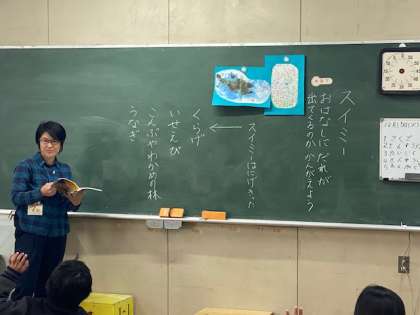 スイミー
おはなしに だれが
出てくるのか かんがえよう
スイミーはにげきった
くらげ
いせえび
こんぶやわかめの林
うなぎ